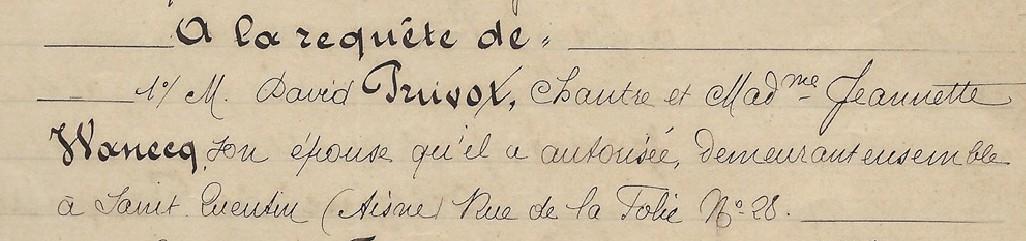 A la requête de :
1º/ M. David Truvox, Chantre et Mad^me Jeannette
Wanecq, son épouse qu'il a autorisée, demeurant ensemble
à Saint Quentin (Aisne) Rue de la Folie Nº 28.